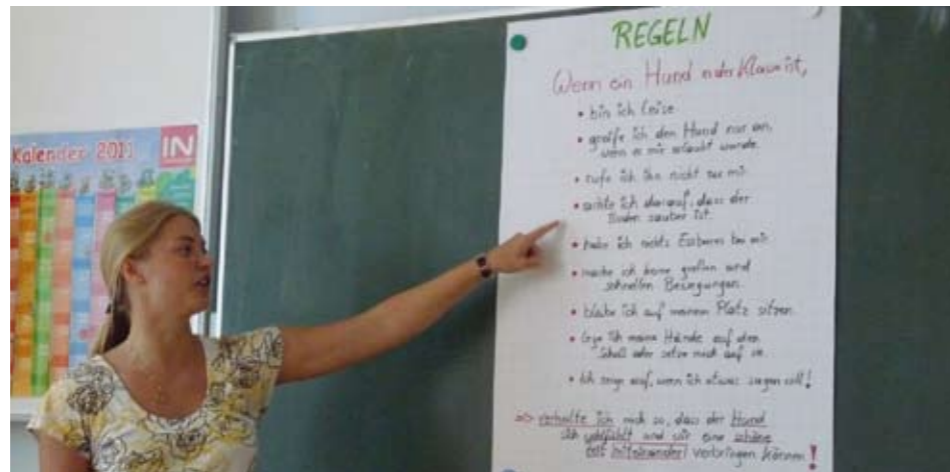 Kalender 2011
IN
REGELN
Wenn ein Hund in der Klasse ist,
• bin ich leise
• greife ich den Hund nur an,
wenn es mir erlaubt wurde.
• rufe ich ihn nicht zu mir.
• achte ich darauf, dass der
Boden sauber ist.
• habe ich nichts Essbares bei mir.
• mache ich keine großen und
schnellen Bewegungen.
• bleibe ich auf meinem Platz sitzen.
• lege ich meine Hände auf den
Schoß oder setze mich auf sie.
• Ich zeige auf, wenn ich etwas sagen will!
=> verhalte ich mich so, dass der Hund
sich wohlfühlt und wir eine schöne
Zeit miteinander verbringen können!